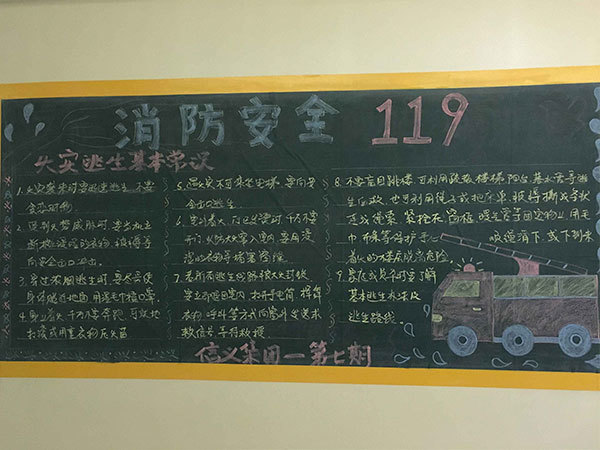 消防安全 119
火灾逃生基本常识
1. 火灾袭来时要迅速逃生, 不要
贪恋财物
2. 受到火势威胁时, 要当机立
断披上浸湿的衣物、被褥等
向安全出口冲出。
3. 穿过浓烟逃生时, 要尽量使
身体贴近地面, 用湿毛巾捂口鼻。
4. 身上着火, 千万不要奔跑, 可就地
打滚或用重衣物压灭苗
5. 遇火灾不可乘坐电梯, 要向安
全出口逃生。
6. 室外着火, 门已发烫时, 千万不要
开门, 以防大火窜入室内, 要用浸
湿的衣物等堵塞
7. 若所有逃生线路被大火封锁
要立即退回室内, 打开手电筒, 挥舞
衣物, 呼叫等方式向窗外发送求
救信号, 等待救援
8. 不要盲目跳楼, 可利用疏散楼梯, 阳台, 落水管等逃
生自救, 也可利用绳子或把床单, 被褥撕成条状
连成绳索, 紧拴在窗框、暖气管等固定物上, 用毛
巾 布条等保护手心
顺绳滑下, 或下到未
着火的楼层脱离危险。
9.
基本逃生
逃生路线
信义集团一第七期